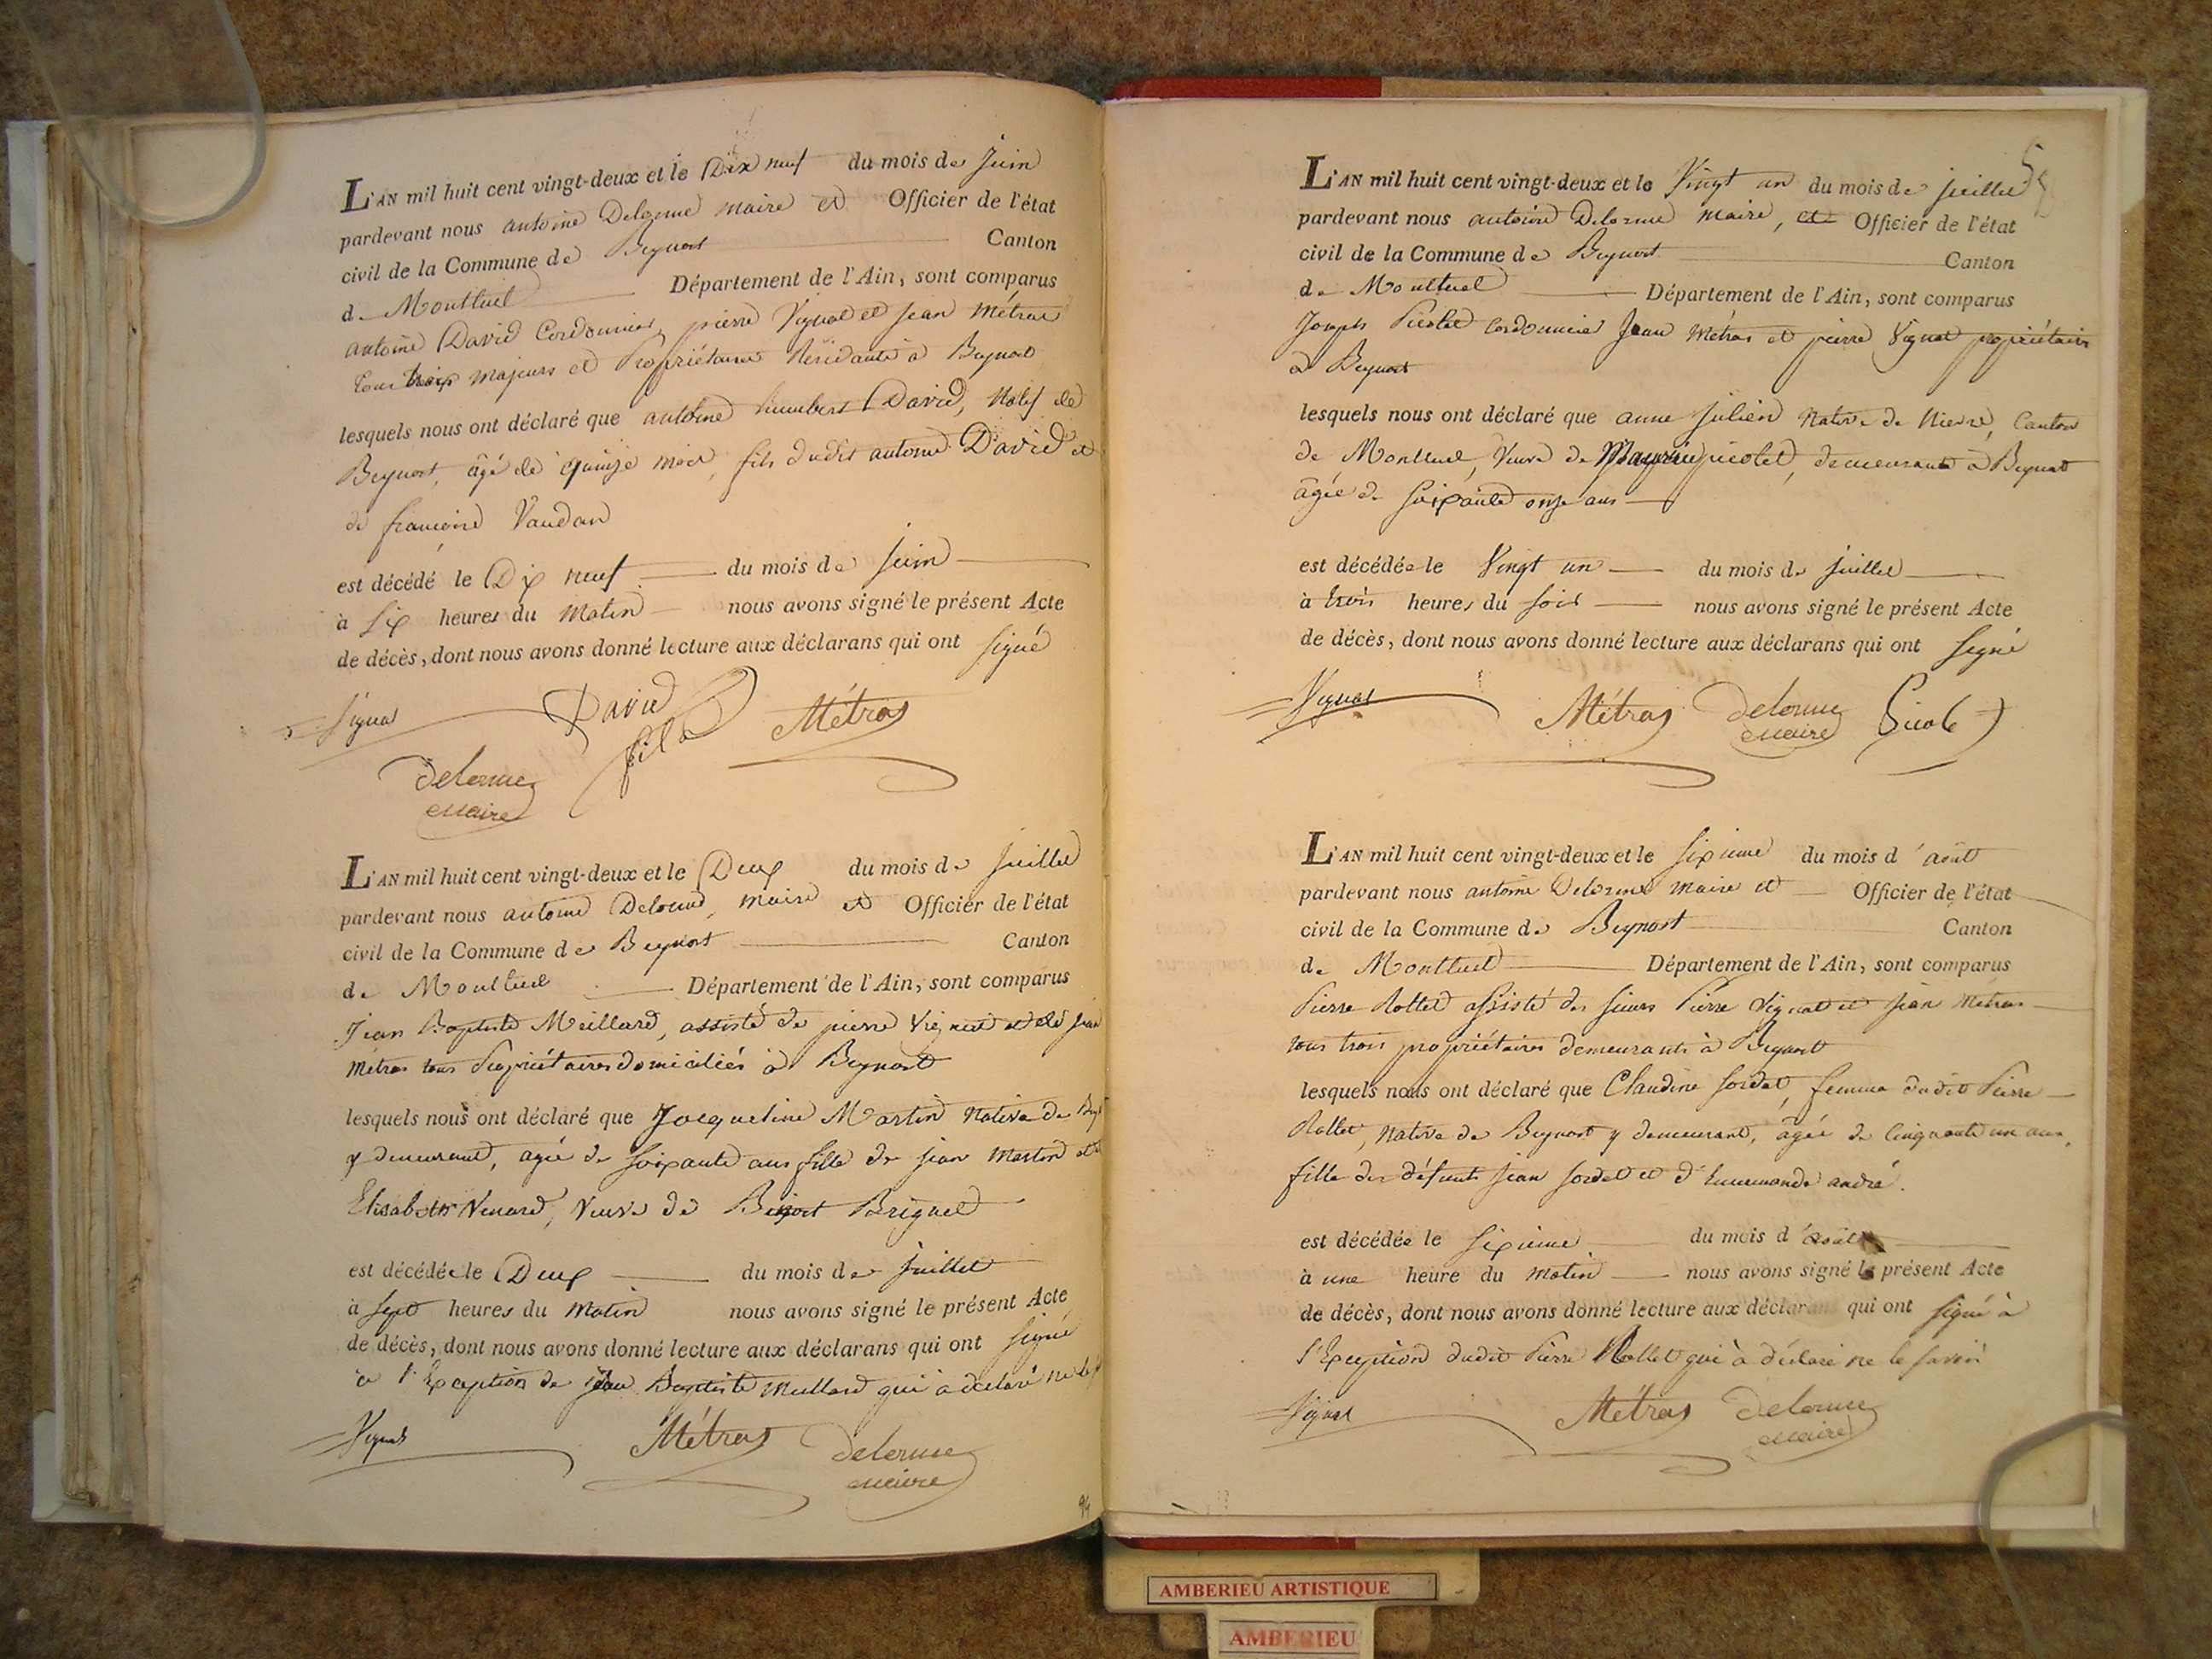 L'AN mil huit cent vingt-deux et le Dix neuf du mois de Juin
pardevant nous antoine Delorme maire et Officier de l'état
civil de la Commune de Beynost Canton
de Montluel Département de l'Ain, sont comparus
antoine David Cordonnier, pierre Vignat et jean Métras
tous trois majeurs et Propriétaires Résidants à Beynost
lesquels nous ont déclaré que antoine humbert David, Natif de
Beynost, âgé de quinze mois, fils dudit antoine David et
de francoise Vaudan
est décédé le Dix neuf du mois de Juin
à Six heures du Matin nous avons signé le présent Acte
de décès, dont nous avons donné lecture aux déclarans qui ont signé
Vignat David fils Métras
delorme
maire
L'AN mil huit cent vingt-deux et le Deux du mois de Juillet
pardevant nous antoine Delorme, maire et Officier de l'état
civil de la Commune de Beynost Canton
de Montluel Département de l'Ain, sont comparus
Jean Baptiste Meillard, assisté de pierre Vignat et de jean
Métras tous Propriétaires domiciliés à Beynost
lesquels nous ont déclaré que Jacqueline Martin Native de
y demeurant, agée de soixante ans fille de jean Martin et
Elisabeth Venard, Veuve de Benoit Briguet
est décédée le Deux du mois de Juillet
à sept heures du Matin nous avons signé le présent Acte
de décès, dont nous avons donné lecture aux déclarans qui ont signé
à l'Exception de jean Baptiste meillard qui a déclaré ne
Vignat Métras delorme
maire
94
L'AN mil huit cent vingt-deux et le Vingt un du mois de juillet
pardevant nous antoine Delorme maire, et Officier de l'état
civil de la Commune de Beynost Canton
de Montluel Département de l'Ain, sont comparus
Joseph Picolet Cordonnier Jean Métras et pierre Vignat propriétaires
à Beynost
lesquels nous ont déclaré que anne Julien Native de Nievre, Canton
de Montluel, Veuve de picolet, demeurante à Beynost
âgée de soixante onze ans
est décédée le Vingt un du mois de juillet
à trois heures du soir nous avons signé le présent Acte
de décès, dont nous avons donné lecture aux déclarans qui ont signé
Vignat Métras delorme Picolet
maire
L'AN mil huit cent vingt-deux et le sixieme du mois d'août
pardevant nous antoine Delorme maire et Officier de l'état
civil de la Commune de Beynost Canton
de Montluel Département de l'Ain, sont comparus
Pierre Rollet assisté des sieurs Pierre Vignat et jean Métras
tous trois propriétaires demeurants à Beynost
lesquels nous ont déclaré que Claudine Sordet, femme dudit Pierre
Rollet, native de Beynost y demeurant, âgée de Cinquante un ans,
fille des défunts jean Sordet et d'Ennemonde andré.
est décédée le sixieme du mois d'août
à une heure du matin nous avons signé le présent Acte
de décès, dont nous avons donné lecture aux déclarans qui ont signé à
l'Exception dudit Pierre Rollet qui à déclaré ne le savoir
Vignat Métras delorme
maire
AMBERIEU ARTISTIQUE
AMBERIEU